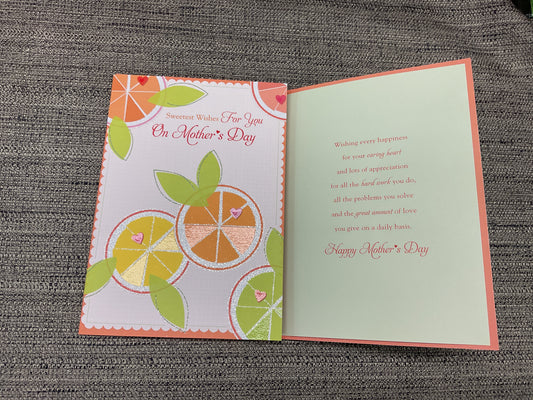 Sweetest Wishes For You
On Mother's Day
Wishing every happiness
for your caring heart
and lots of appreciation
for all the hard work you do,
all the problems you solve
and the great amount of love
you give on a daily basis.
Happy Mother's Day